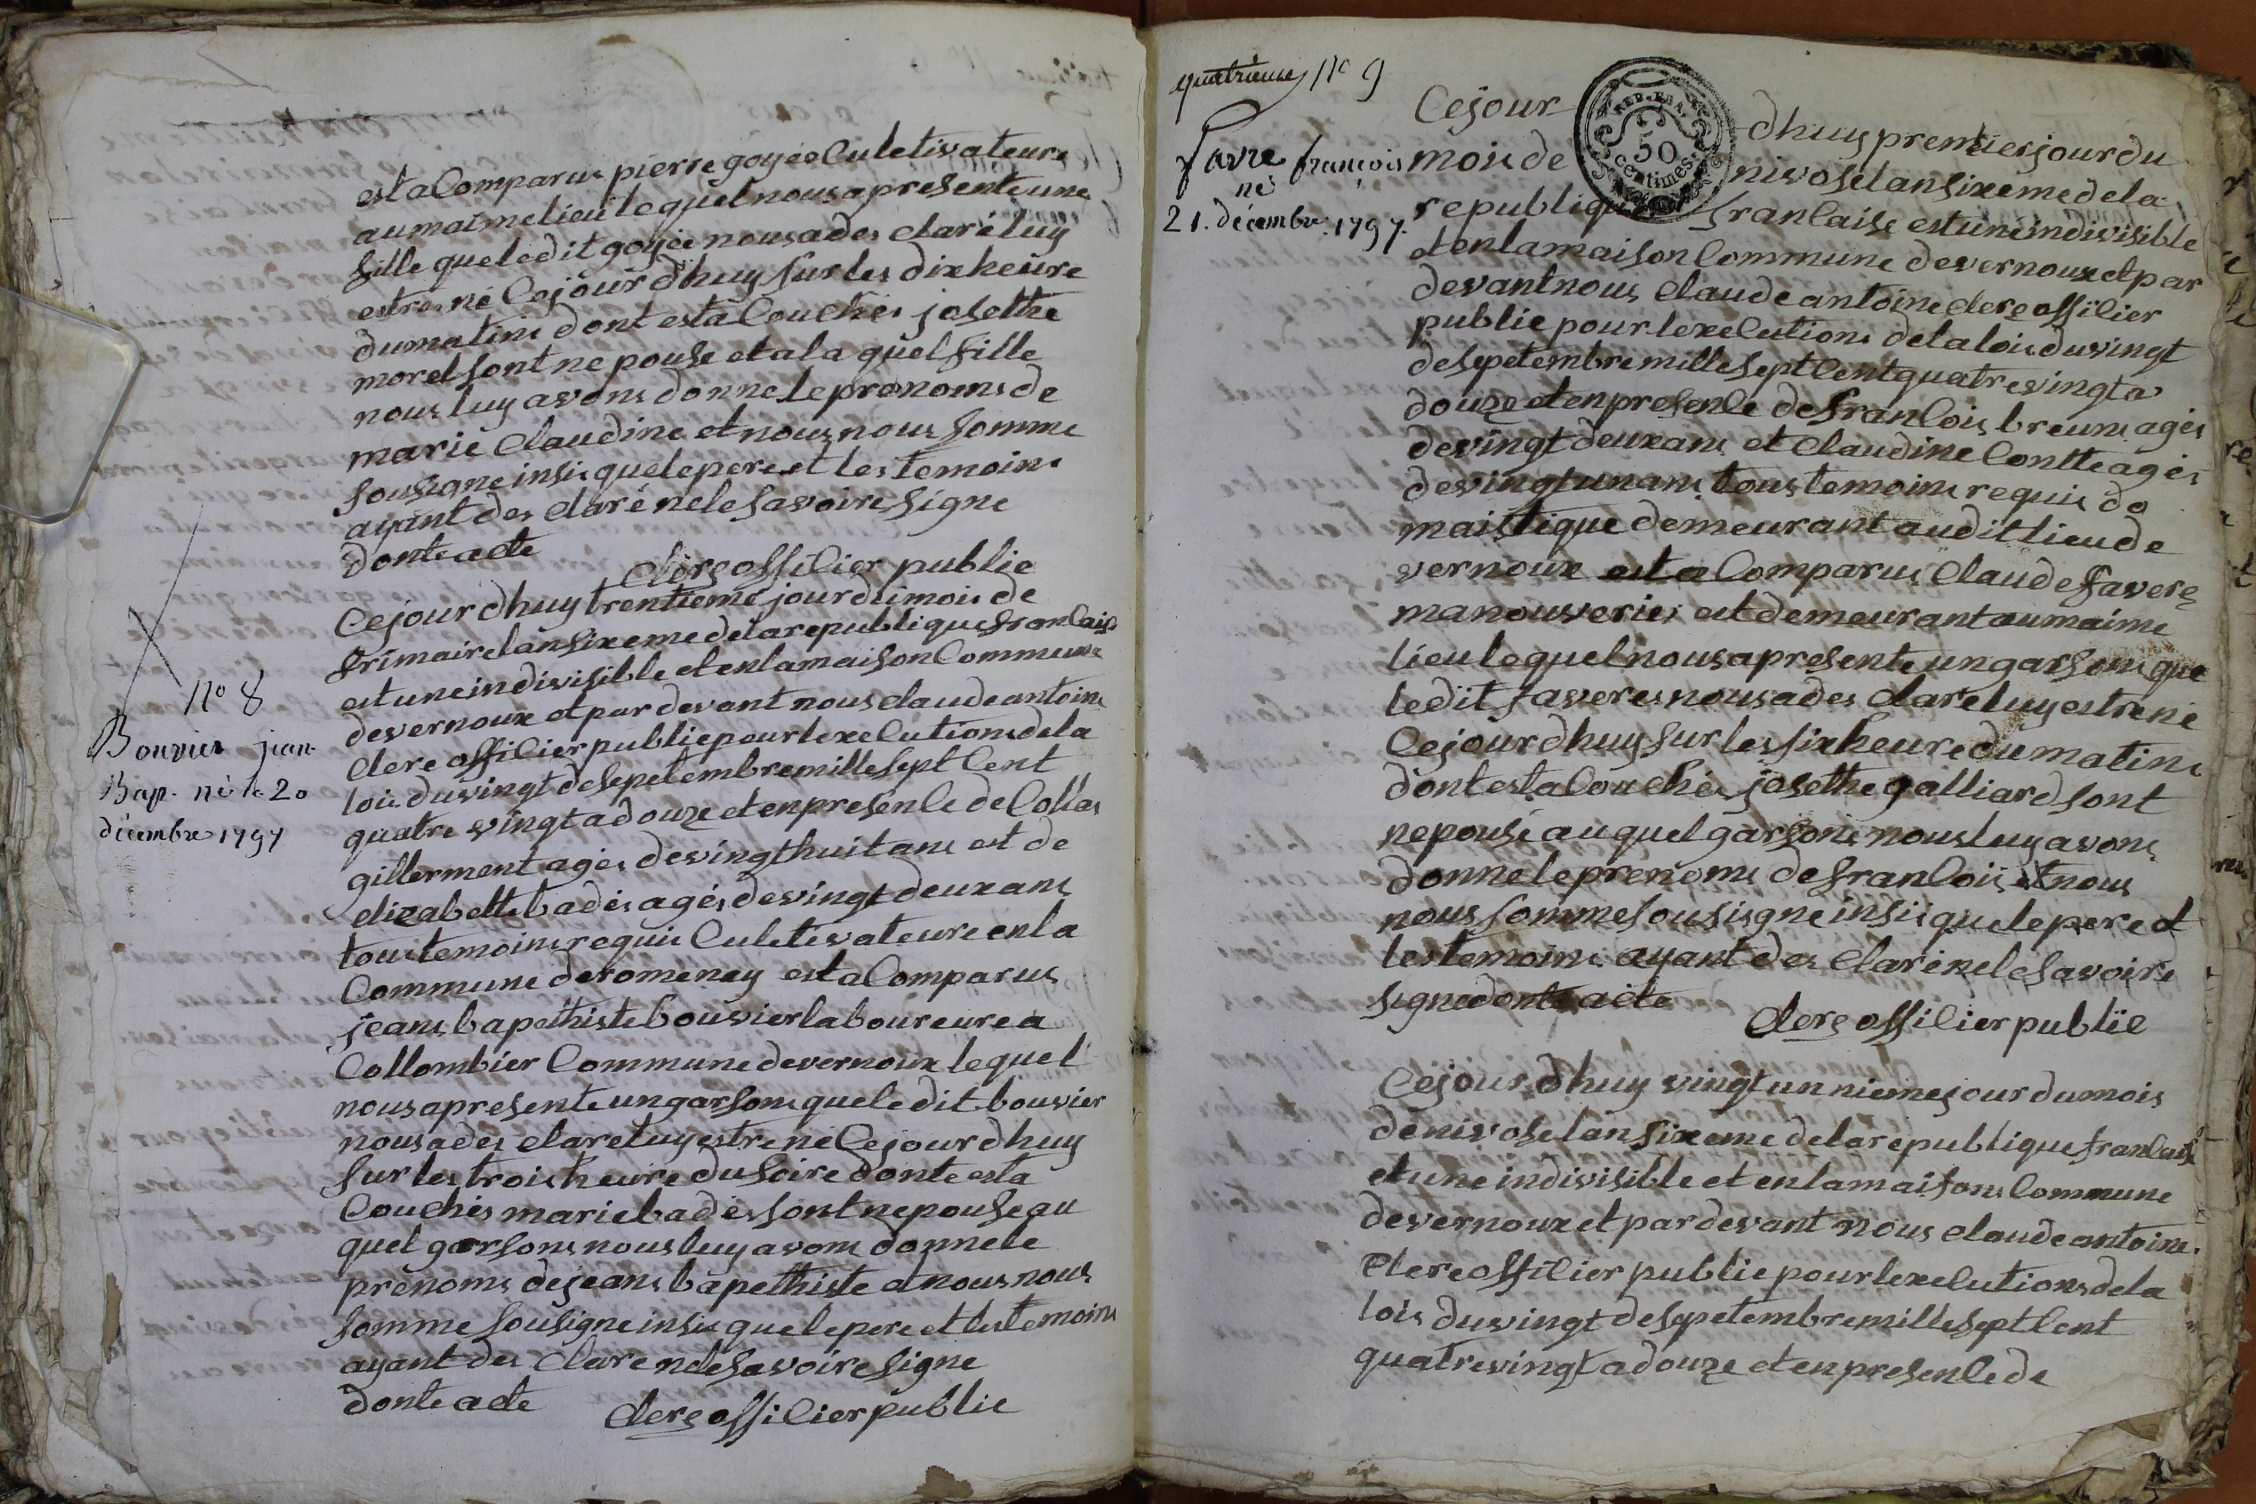 esta Comparus pierre goyée Culetivateure
aumaime lieu lequel nous a presente une
fille que ledit goyée nous a des claré luy
estre né Cejour dhuy sur les dix heure
du matins dont esta Couchés josethe
morel sont ne pouse et a la quel fille
nous luy avons donne le prenoms de
marie Claudine et nous nous somme
sousigne insis que le pere et les temoins
ayant des claré ne le savoire signe
donte acte
Clerc offilier public
Cejour dhuy trentieme jour du mois de
frimaire lan sixeme de la republique franlais
est une indivisible et en la maison Commune
de vernoux et par devant nous claude antoine
Clerc offilier public pour lexelutions de la
lois du vingt de sepetembre mille sept Cent
quatre vingt a douze et en presenle de Collas
gillerment ages de vingt huit ans et de
elizabette bades agés de vingt deux ans
tous temoins requis Culetivateure en la
Commune de romenay esta Comparus
jeans bapethiste bouvier laboureure a
Collombier Commune de vernoux lequel
nous a presente un garsons que ledit bouvier
nous a des clare luy estre né Cejour dhuy
sur les trois heure du soire donte esta
Couchés marie bades sont ne pouse au
quel garsons nous luy avons donne le
prenoms de jeans bapethiste et nous nous
somme sousigne insis que le pere et les temoins
ayant des clare ne le savoire signe
donte acte
Clerc offilier public
N° 8
Bouvier jean-
Bap. né le 20
décembre 1797
quatrieme N° 9
Favre françois
né
21. décembre 1797.
REP. FRA.
50
centimes
Cejour dhuy premier jour du
mois de nivose lan sixeme de la
republique franlaise est une indivisible
et en la maison Commune de vernoux et par
devant nous claude antoine clerc offilier
public pour lexelutions de la lois du vingt
de sepetembre mille sept Cent quatre vingt a
douze et en presenle de franlois breuns agés
de vingt deux ans et Claudine Contte agés
de vingt un ans tous temoins requis do
maistique demeurant audit lieu de
vernoux esta Comparus Claude favere
manouveries est demeurant au maime
lieu lequel nous a presente un garsons que
ledit faveres nous a des clare luy estre né
Cejour dhuy sur les six heure du matins
dont esta Couchés josethe galliard sont
ne pousé au quel garsons nous luy avons
donne le prenoms de franlois et nous
nous somme sousisgne insis que le pere et
les temoins ayant des claré ne le savoire
signe donte acte
Clerc offilier public
Cejour dhuy vingt un nieme jour du mois
de nivose lan sixeme de la republique franlaise
et une indivisible et en la maisons Commune
de vernoux et par devant nous claude antoine
Clerc offilier public pour lexelutions de la
lois du vingt de sepetembre mille sept Cent
quatre vingt a douze et en presenle de